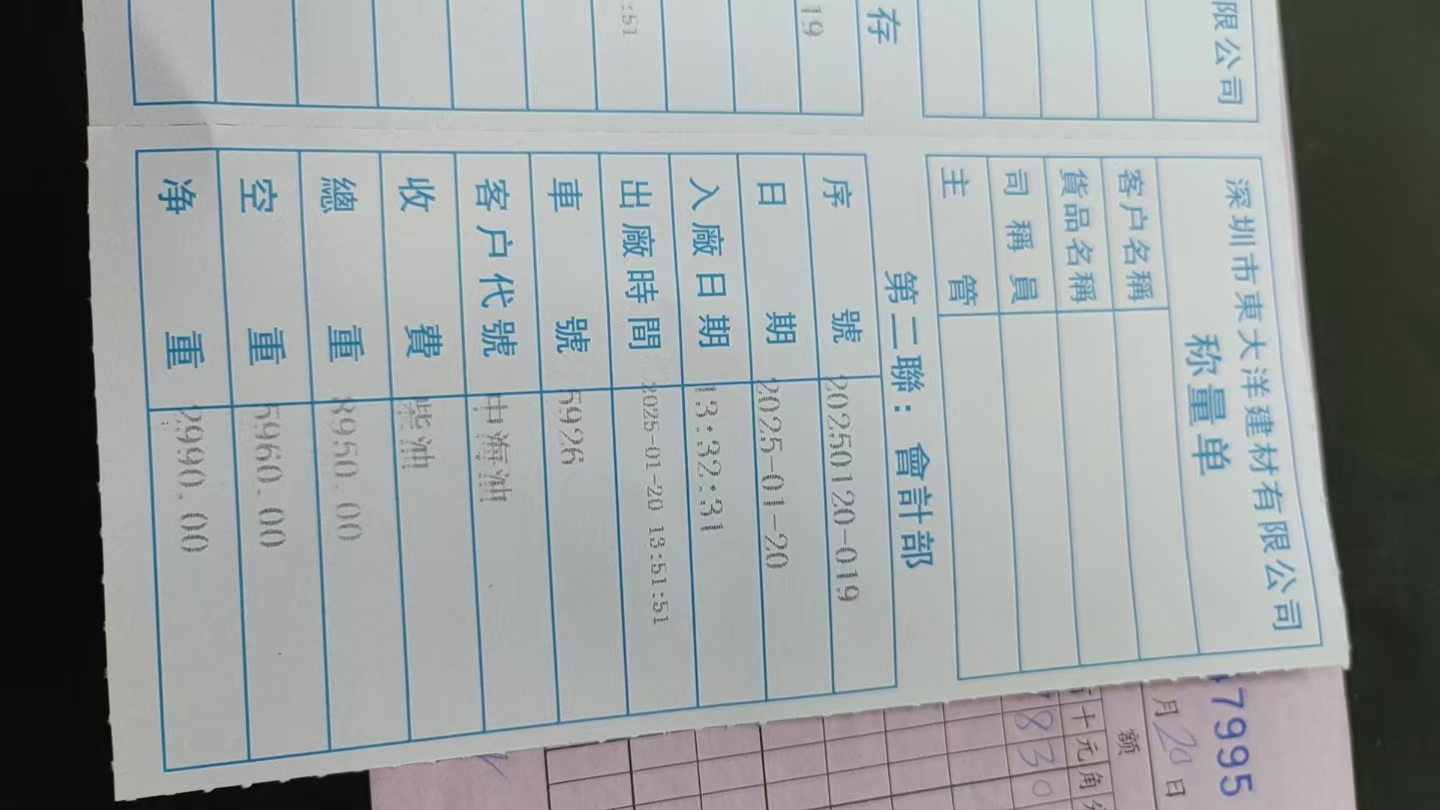 限公司
存
19
:51
深圳市東大洋建材有限公司
称量单
客户名稱
貨品名稱
司稱員
主管
第二聯：會計部
序號 20250120-019
日期 2025-01-20
入廠日期 13:32:31
出廠時間 2025-01-20 13:51:51
車號 5926
客户代號 中海油
收費 柴油
總重 8950.00
空重 5960.00
净重 2990.00
7995
月20日
額
十元角分
830